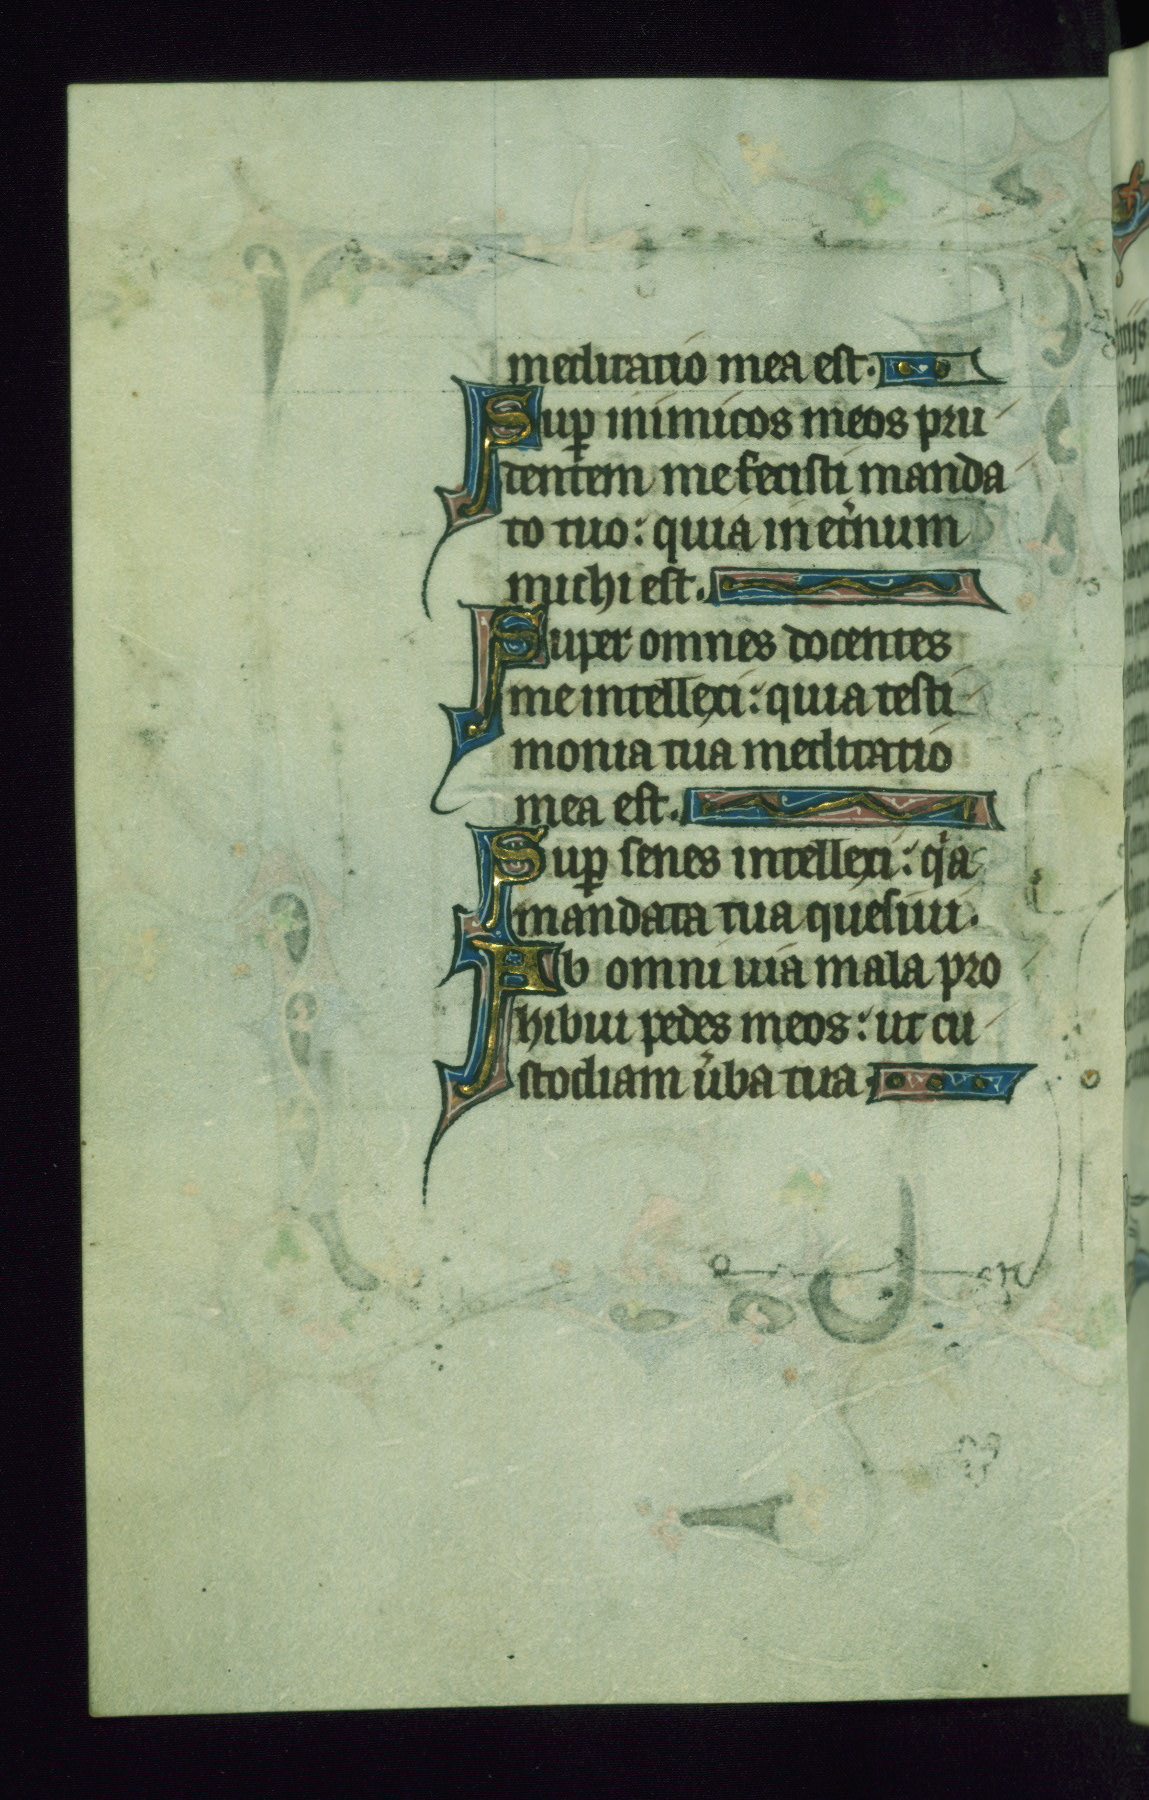 meditatio mea est.
Sup inimicos meos pru
dentem me fecisti manda
to tuo: quia in et'num
michi est.
Super omnes docentes
me intellexi: quia testi
monia tua meditatio
mea est.
Sup senes intellexi: q'a
mandata tua quesiui.
Ab omni uia mala pro
hibui pedes meos: ut cu
stodiam u'ba tua.